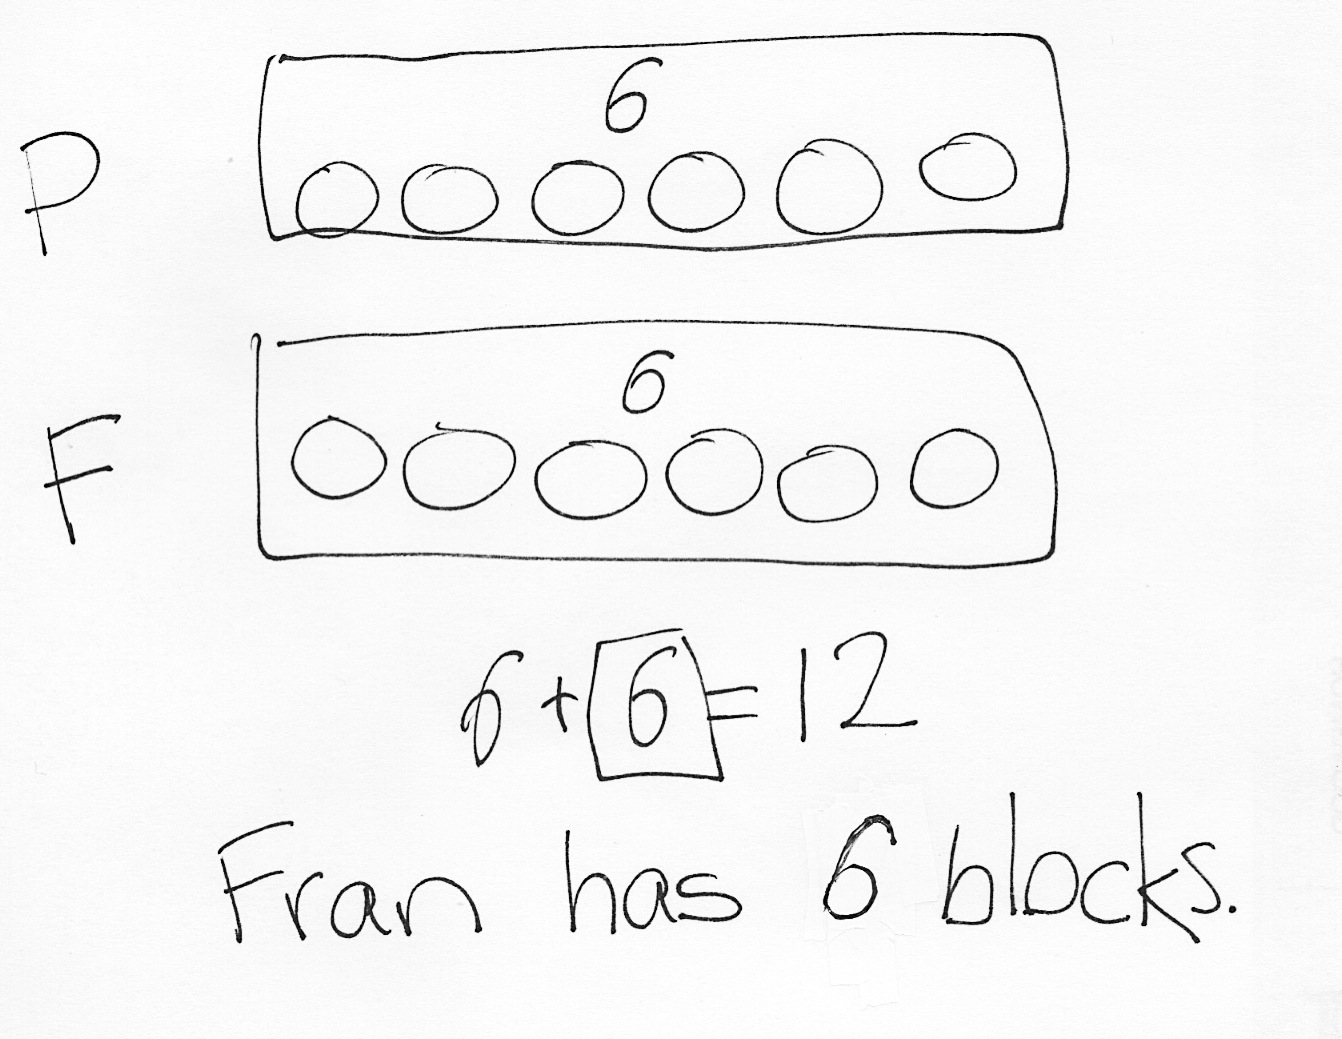 P
6
F
6
6 + 6 = 12
Fran has 6 blocks.